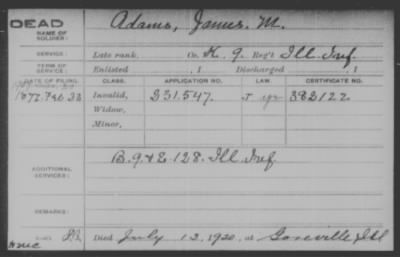 DEAD
NAME OF SOLDIER:
Adams, James. M.
SERVICE:
Late rank, Co. K. 9. Reg't Ill. Inf.
TERM OF SERVICE:
Enlisted , 1 Discharged , 1
DATE OF FILING. CLASS. APPLICATION NO. LAW. CERTIFICATE NO.
Invalid, 331.547. 382122
Widow,
Minor,
ADDITIONAL SERVICES:
B. 9 & E 128. Ill Inf
REMARKS:
Died July 13, 1920, at Goreville Ill